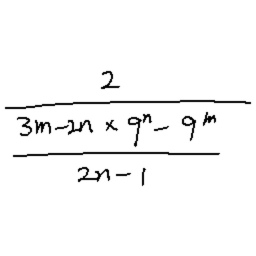 2
3m-2n × 9ⁿ - 9ᵐ
2n-1